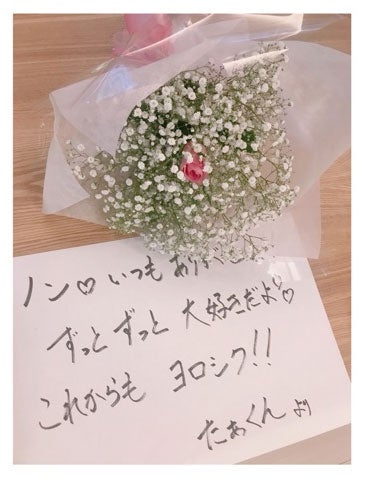 ノン♡いつもありがとう
ずっとずっと大好きだよ♡
これからもヨロシク!!
たぁくんより